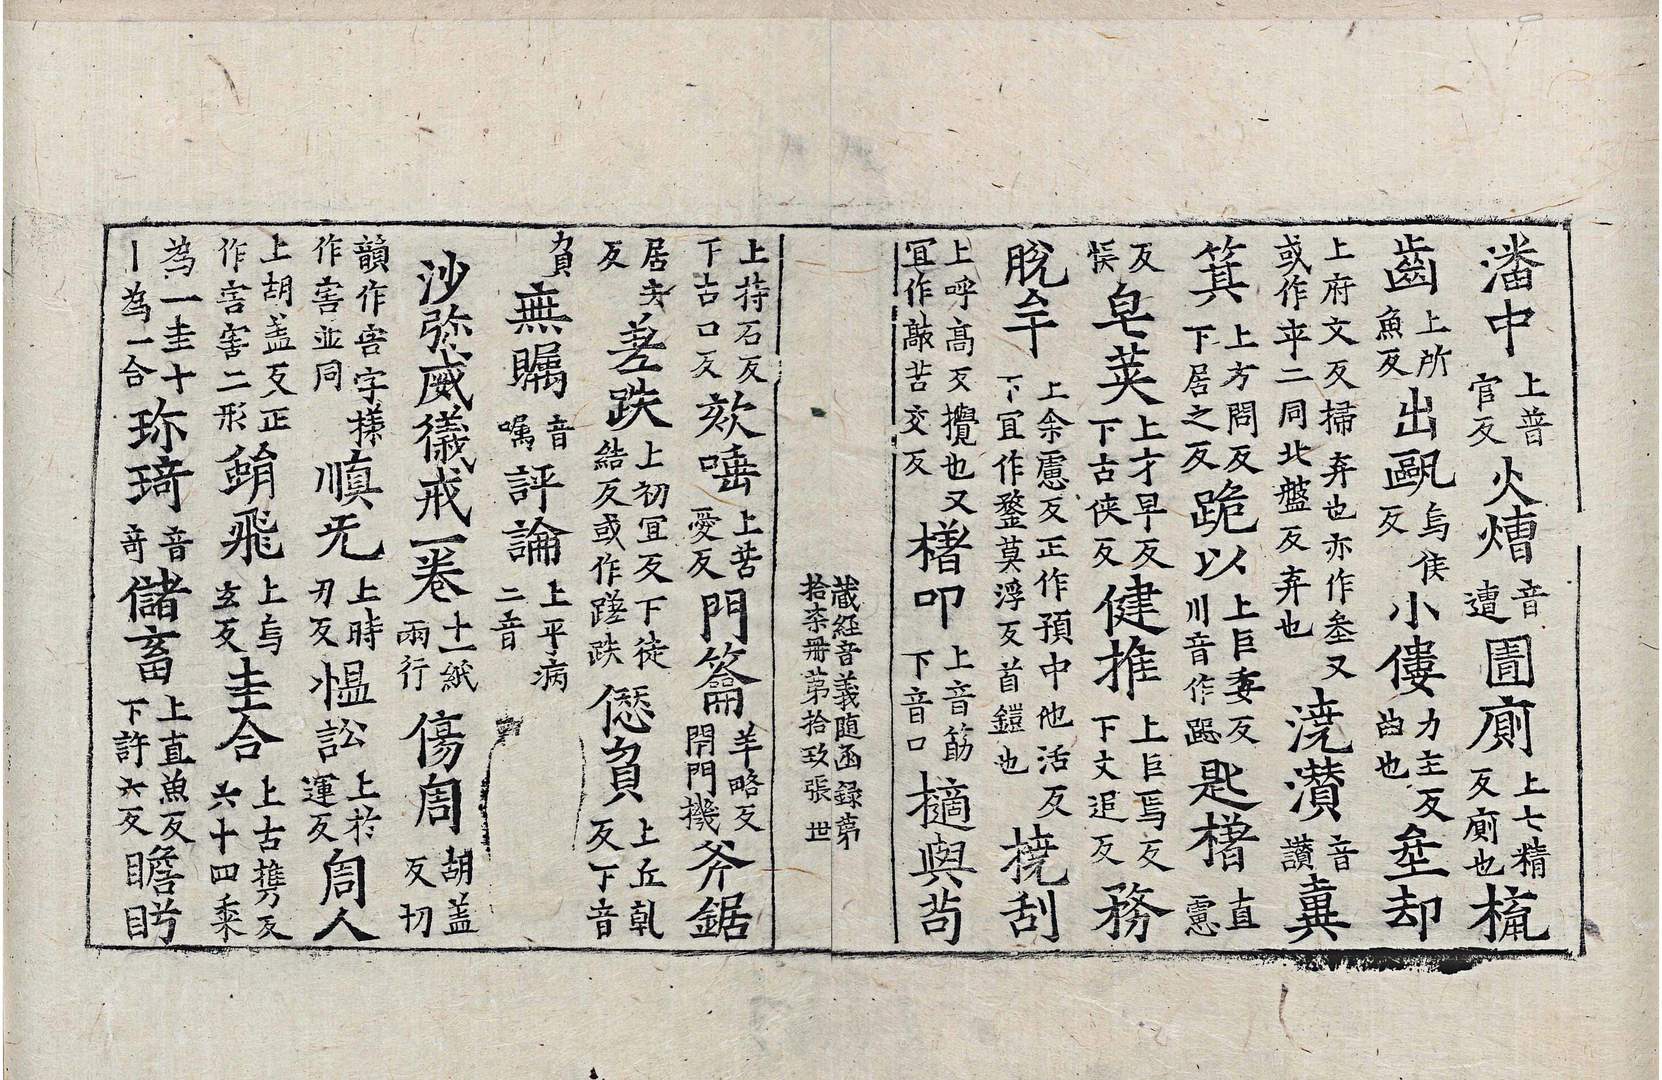 潘中上普官反火熷音遭圊廁上七精反廁也梳
齒上所魚反出甌烏侯反小僂力主反凷也坌却
上府文反掃弃也亦作坌又或作㚏二同北盤反弃也澆灒音讃糞
箕上方問反下居之反跪以上巨委反川音作跽匙櫡直慮
反悮皂莢上才早反下古侠反健推上巨焉反下文追反務
脫𠦑上余慮反正作預中他活反下宜作鍪莫浮反首鎧也撓刮
上呼髙反攪也又宜作敲苦交反櫡叩上音筯下音口擿與茍
藏経音義随函録第拾柒冊第拾玖張 世
上持石反下古口反欬唾上苦愛反門籥羊略反開門機斧鋸
居去反差跌上初宜反下徒結反或作蹉跌僁負上丘乹反下音
負無矚音嘱評論上平病二音
沙弥威儀戒一卷十一紙兩行傷周胡盖反切
韻作害字樣作害並同順旡上時刃反愠訟上於運反周人
上胡盖反正作害害二形蜎飛上烏玄反圭合上古攜反六十四黍
為一圭十丨為一合珎琦音竒儲畜上直魚反下許六反瞻眄